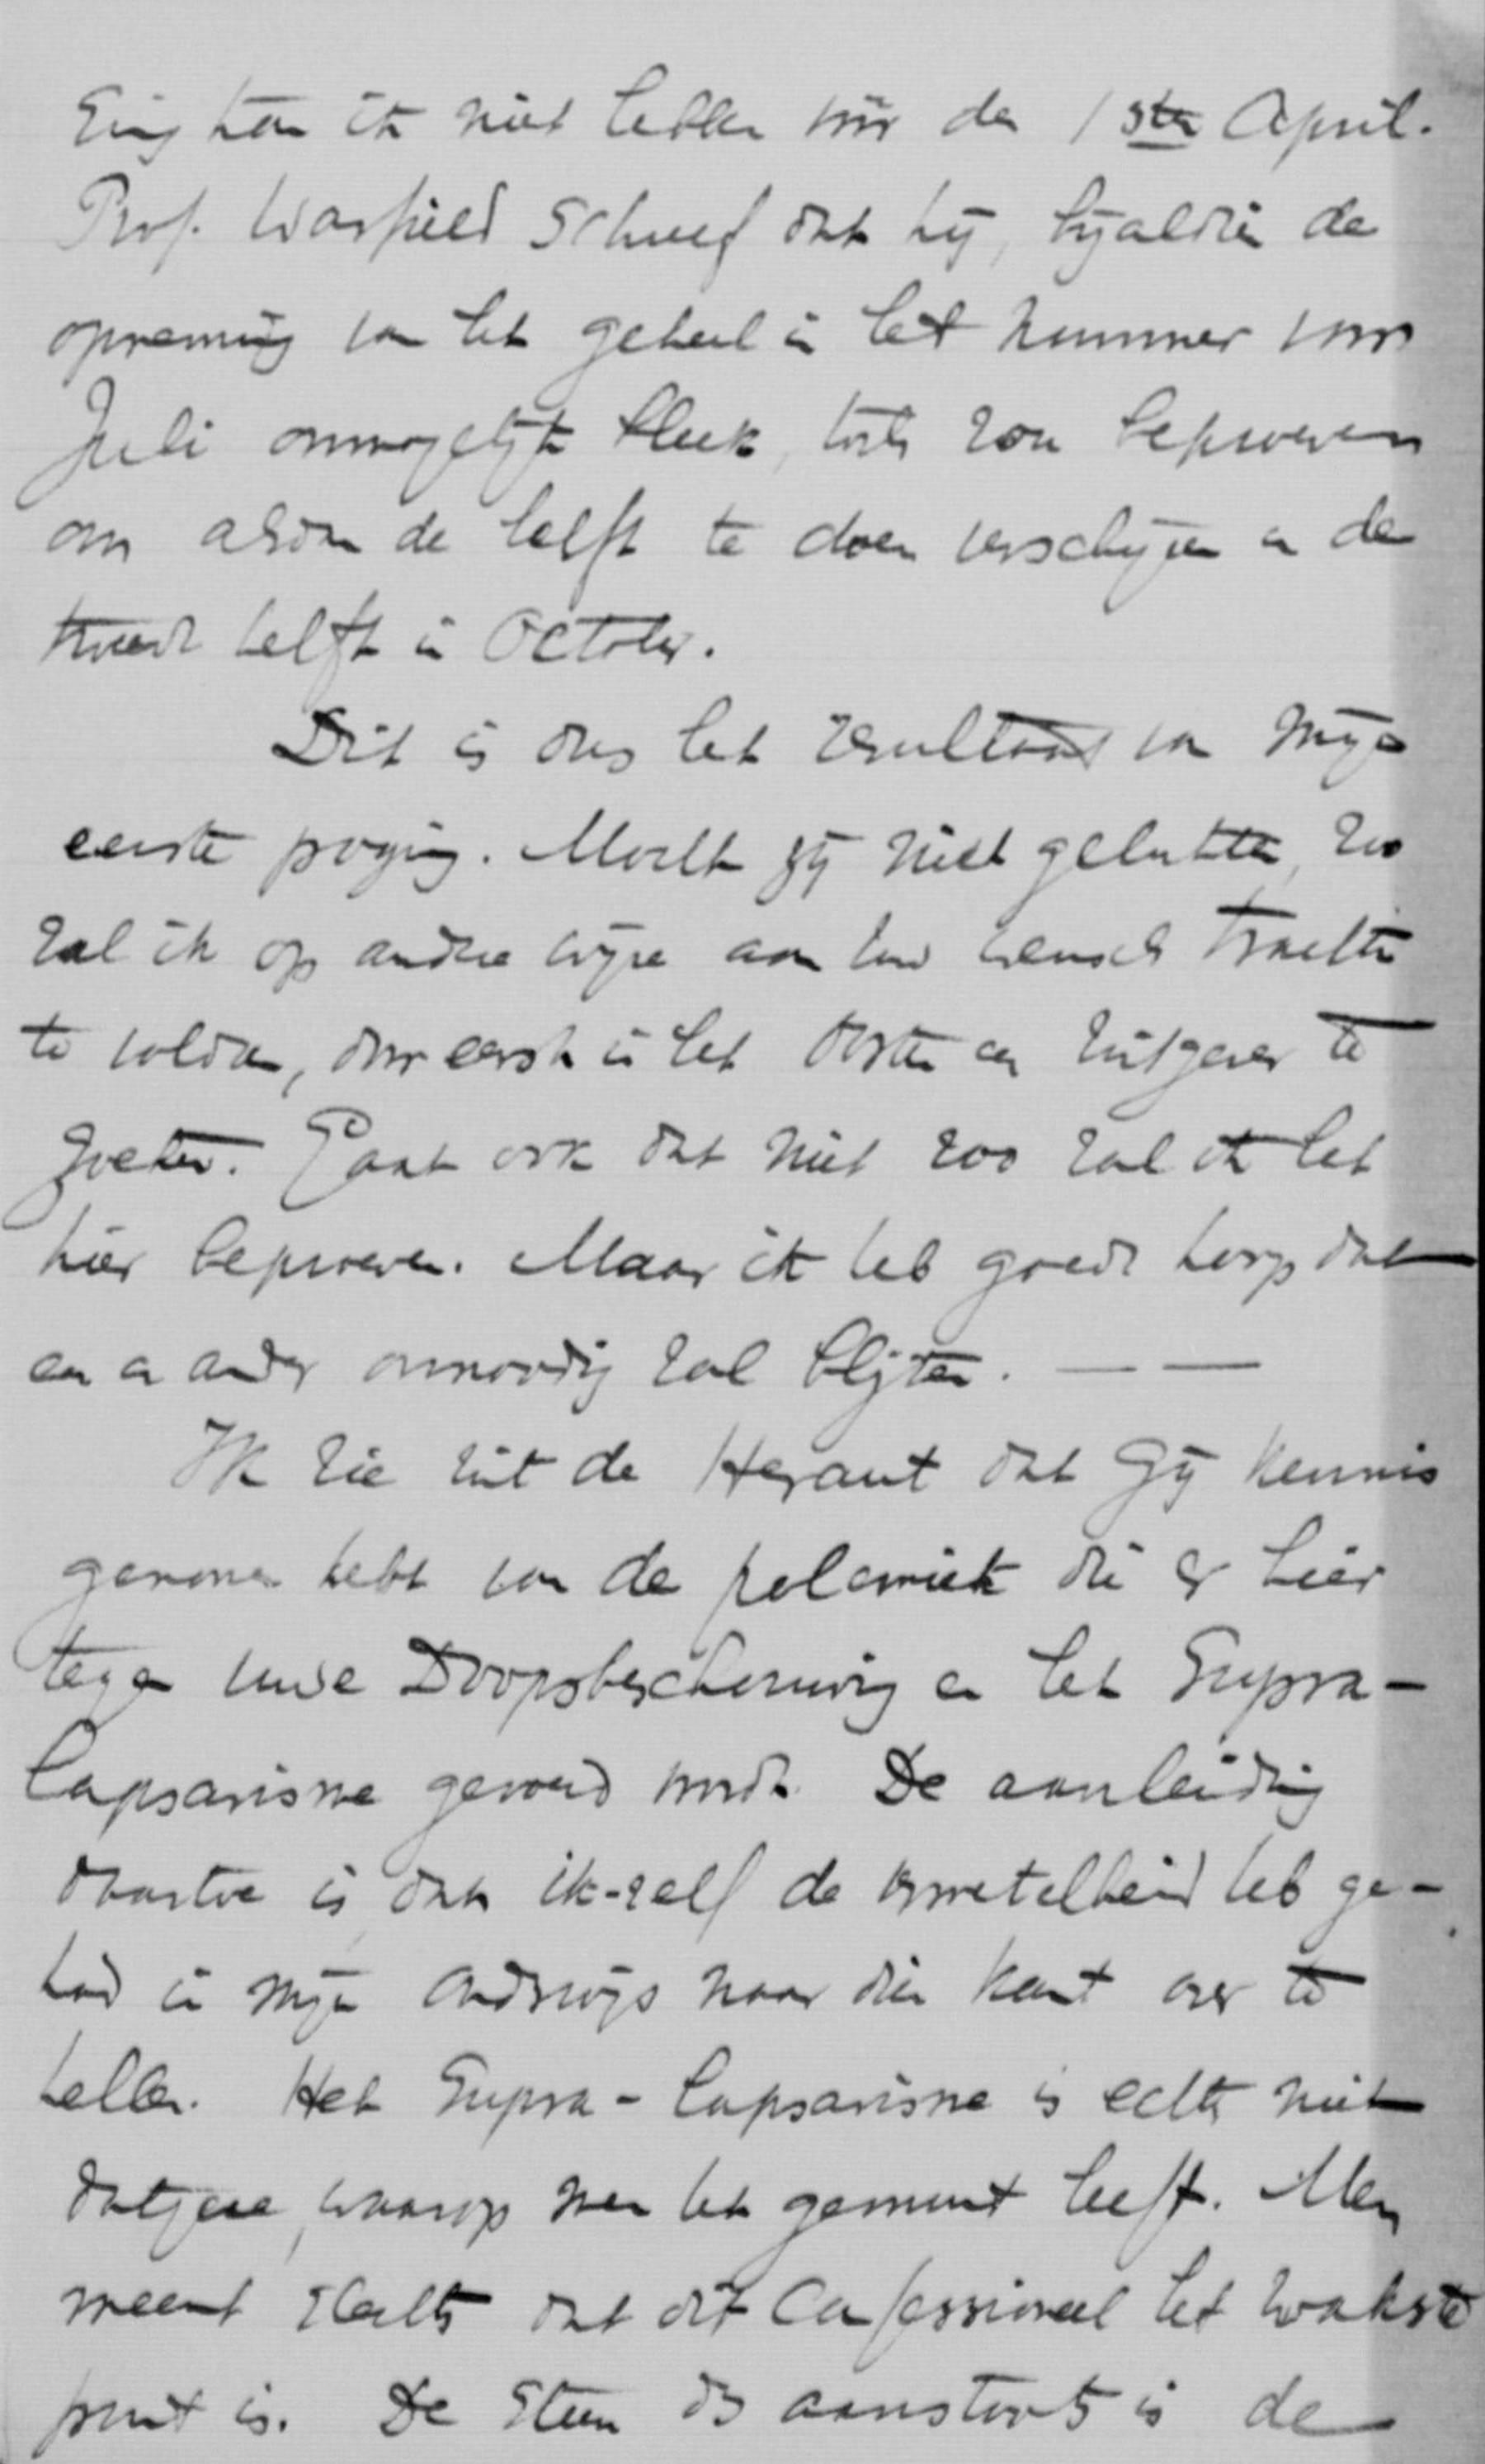 ding kan ik niet hebben vóór den 1sten April.
Prof. Warfield schreef dat hij, bijaldien de
opneming van het geheel in het nummer voor
Juli onmogelijk bleek, toch zou beproeven
om alsdan de helft te doen verschijnen en de
tweede helft in October.
Dit is dus het resultaat van mijn
eerste poging. Mocht zij niet gelukken, zoo
zal ik op andere wijze aan Uw wensch trachten
te voldoen, door eerst in het Oosten een uitgever te
zoeken. Gaat ook dat niet zoo zal ik het
hier beproeven. Maar ik heb goede hoop dat
een en ander onnoodig zal blijken. — —
Ik zie uit de Heraut dat Gij kennis
genomen hebt van de polemiek die er hier
tegen uwe Doopsbeschouwing en het Supra-
lapsarisme gevoerd wordt. De aanleiding
daartoe is, dat ik-zelf de vermetelheid heb ge-
had in mijn Onderwijs naar dien kant over te
hellen. Het Supra-lapsarisme is echter niet
datgene, waarop men het gemunt heeft. Men
meent slechts dat dit Confessioneel het zwakste
punt is. De steen des aanstoots is de